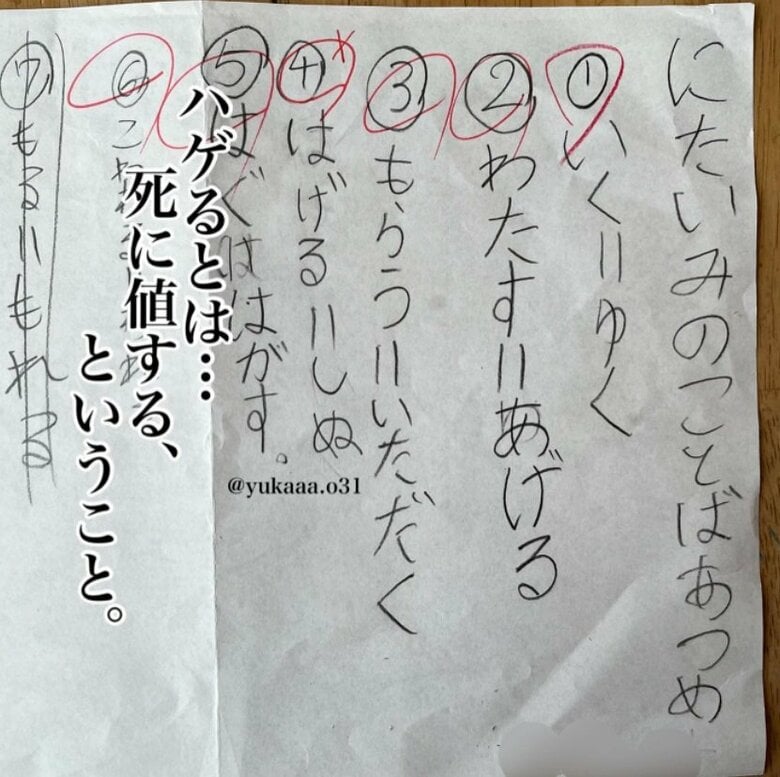 にたいみのことばあつめ
①いく=ゆく
②わたす=あげる
③もらう=いただく
④はげる=しぬ
⑤はぐ=はがす。
⑥
⑦もる=もれる
ハゲるとは…
死に値する、
ということ。
@yukaaa.o31